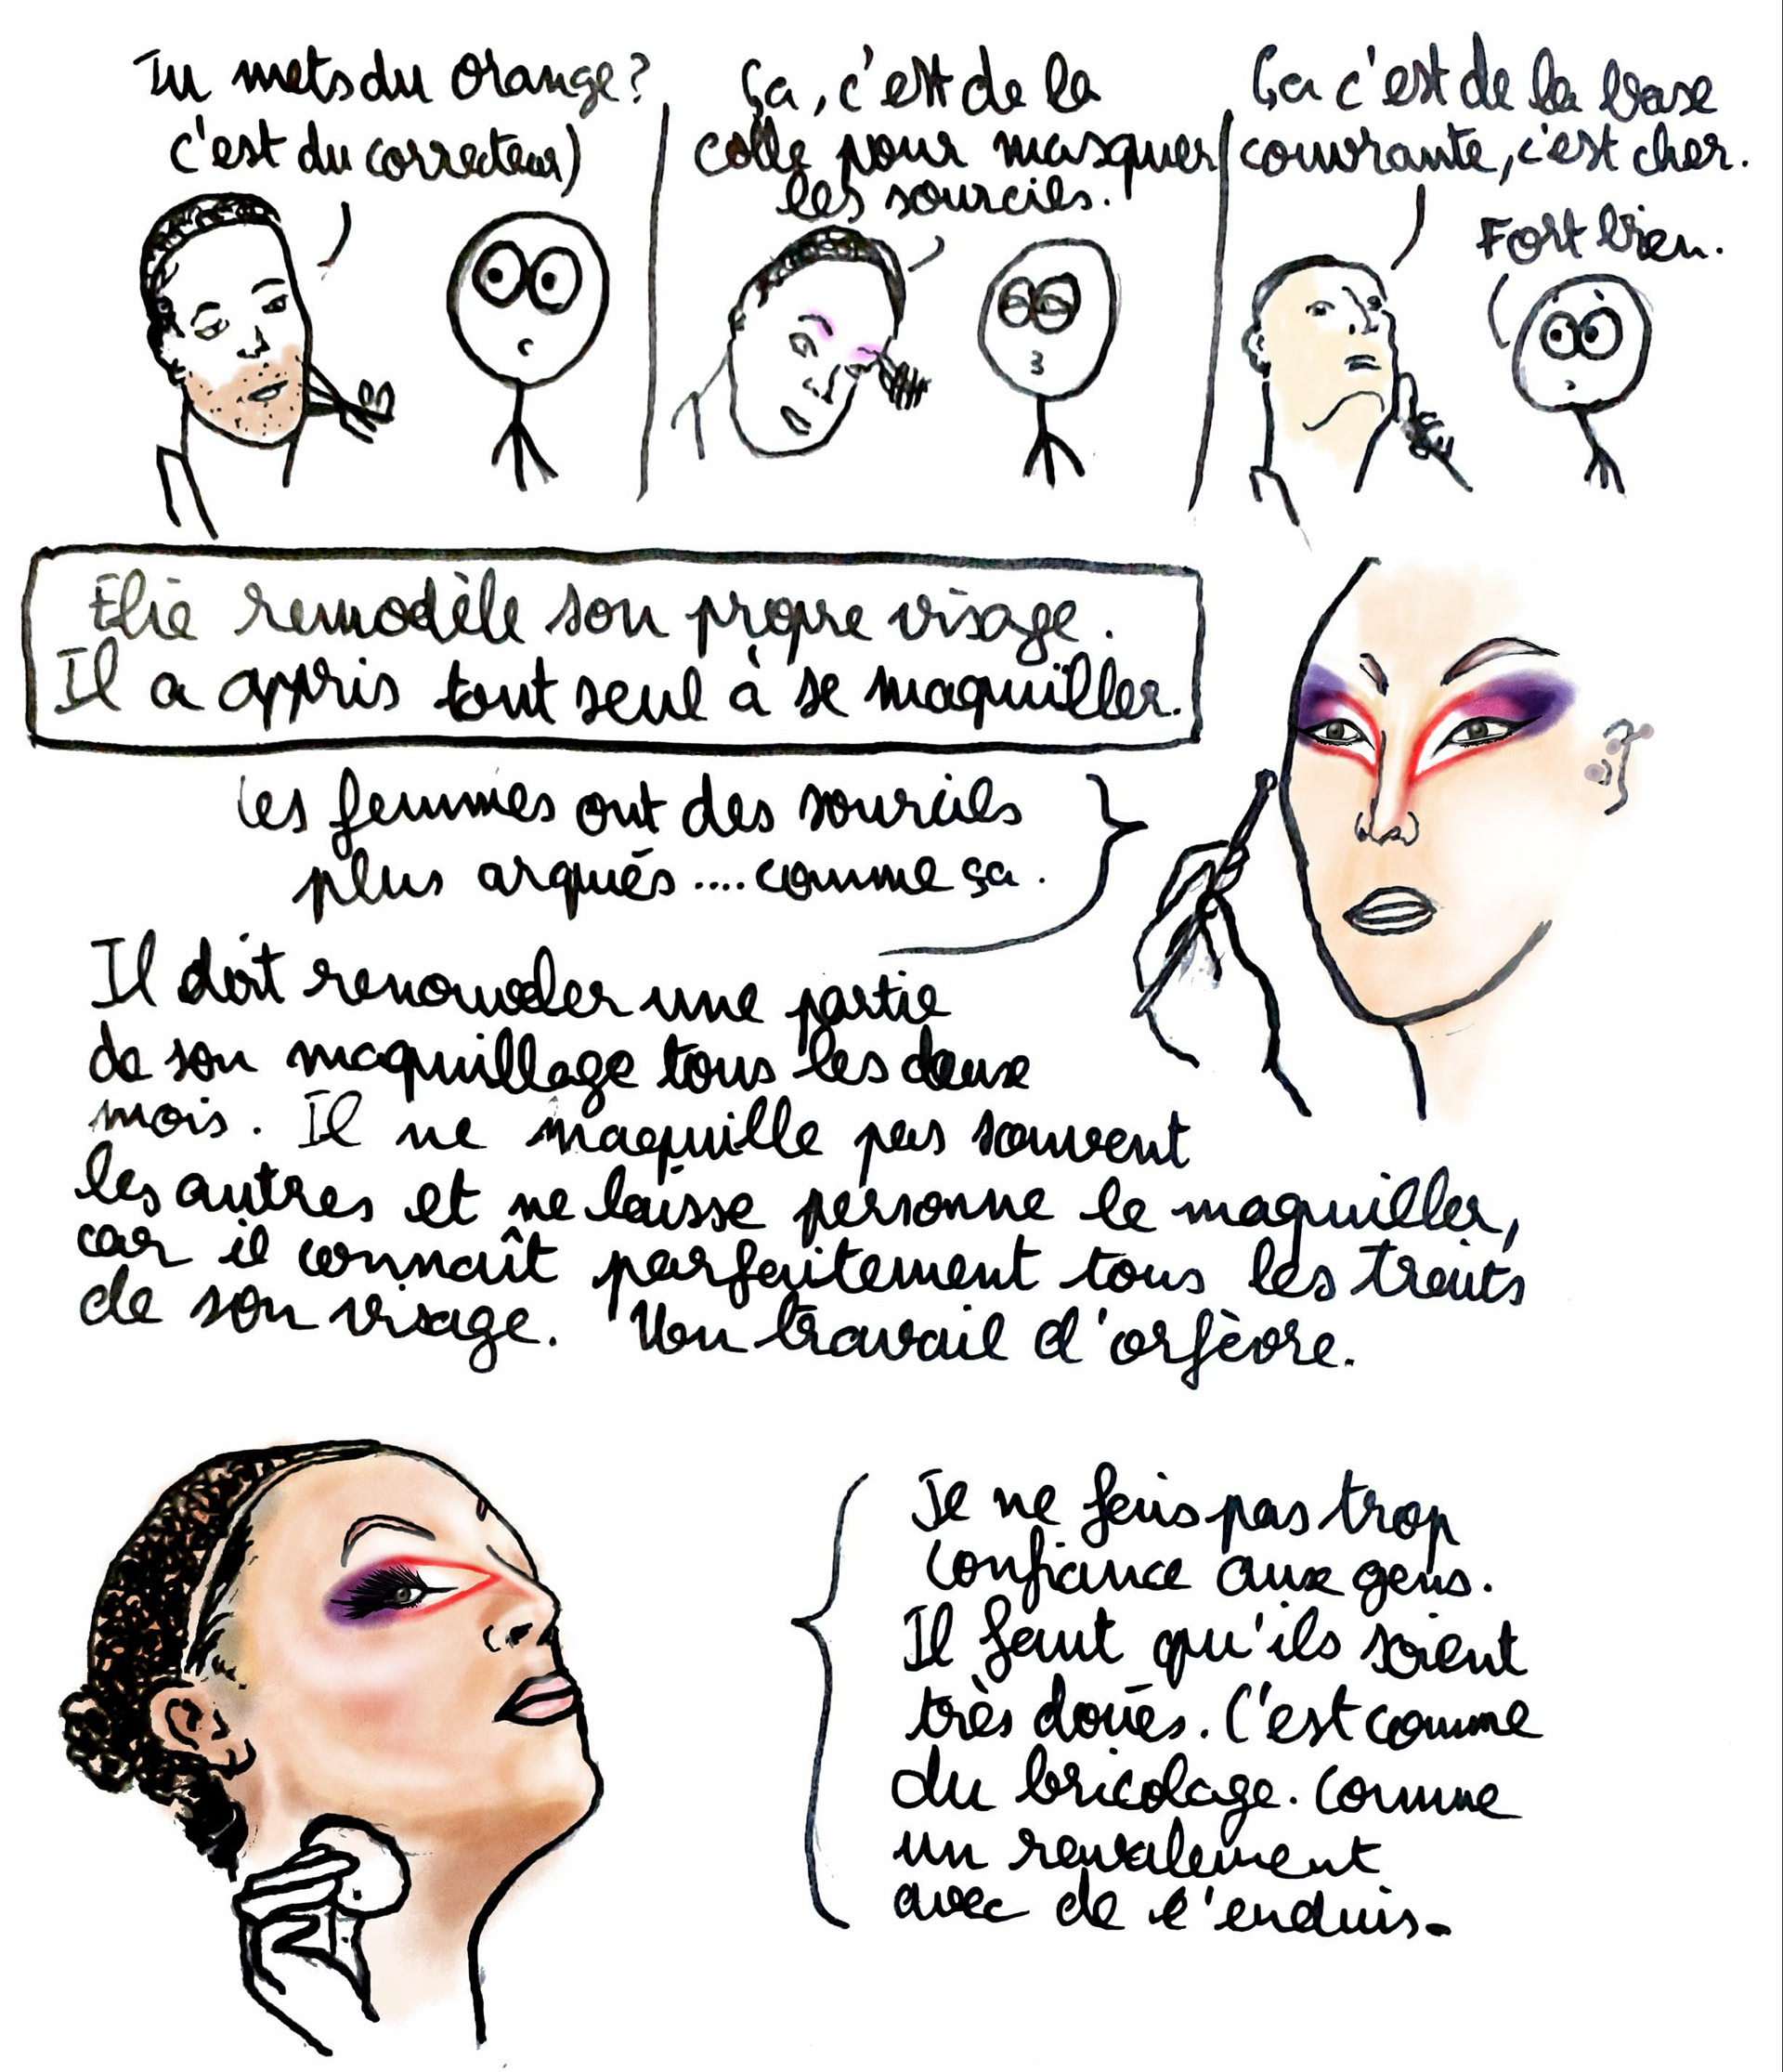 Tu mets du orange?
c'est du correcteur)
Ça, c'est de la
colle pour masquer
les sourcils.
Ça c'est de la base
couvrante, c'est cher.
Fort bien.
Elie remodèle son propre visage.
Il a appris tout seul à se maquiller.
Les femmes ont des sourcils
plus arqués....comme ça.
Il doit renouveler une partie
de son maquillage tous les deux
mois. Il ne maquille pas souvent
les autres et ne laisse personne le maquiller,
car il connaît parfaitement tous les traits
de son visage. Un travail d'orfèvre.
Je ne fais pas trop
confiance aux gens.
Il faut qu'ils soient
très doués. C'est comme
du bricolage. Comme
un ravalement
avec de l'enduis.